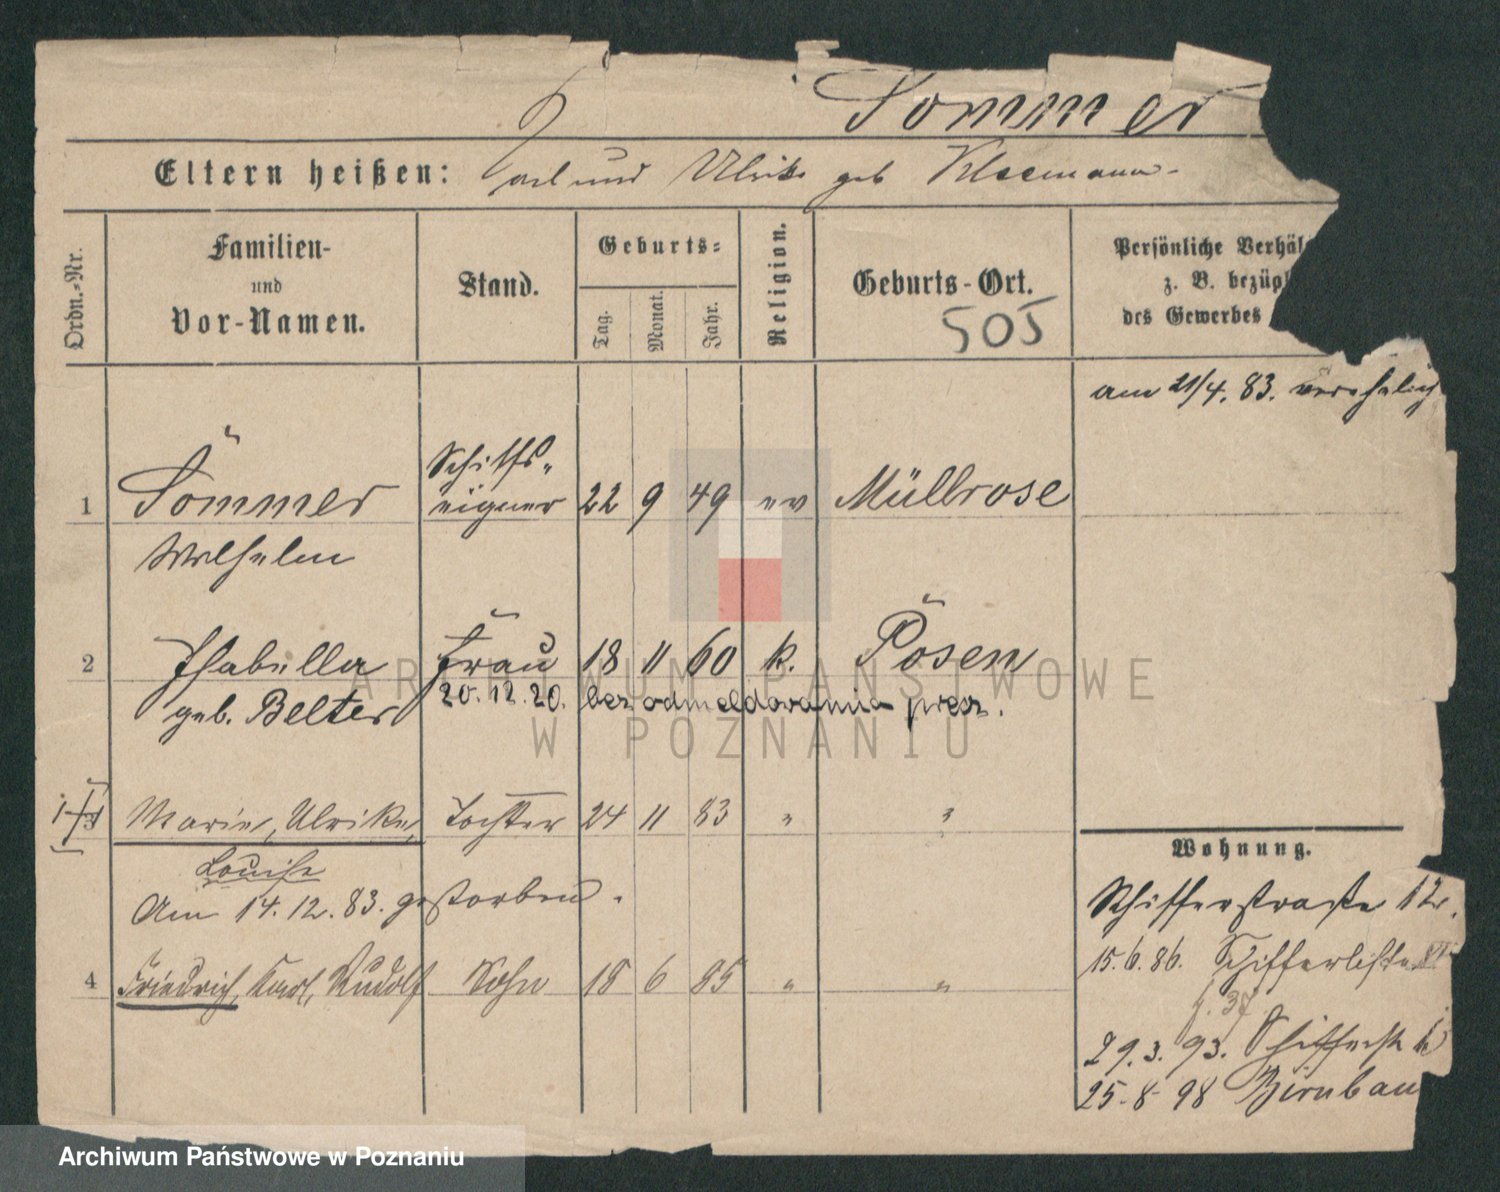 Sommer
Eltern heißen: Carl und Ulrike geb Kleemann
Ordn.-Nr.
Familien-
und
Vor-Namen.
Stand.
Geburts-
Tag.
Monat.
Jahr.
Religion.
Geburts-Ort.
505
Persönliche Verhäl
z. B. bezügl
des Gewerbes
am 21/4. 83. verehelich
1 Sommer Schiffs- eigner 22 9 49 ev Müllrose
Wilhelm
2 Isabella Frau 18 11 60 k. Posen
geb. Belter 20.12.20. bez odmeldowania przez.
3 Marie, Ulrike, Tochter 24 11 83 " "
Louise
Am 14.12.83. gestorben.
4 Friedrich, Karl, Rudolf Sohn 18 6 85 " "
Wohnung.
Schifferstraße 12.
15.6.86. Schifferstr
f. 37
29.3.93. Schifferstr
25-8-98 Birnbau
ARCHIWUM PAŃSTWOWE
W POZNANIU
Archiwum Państwowe w Poznaniu